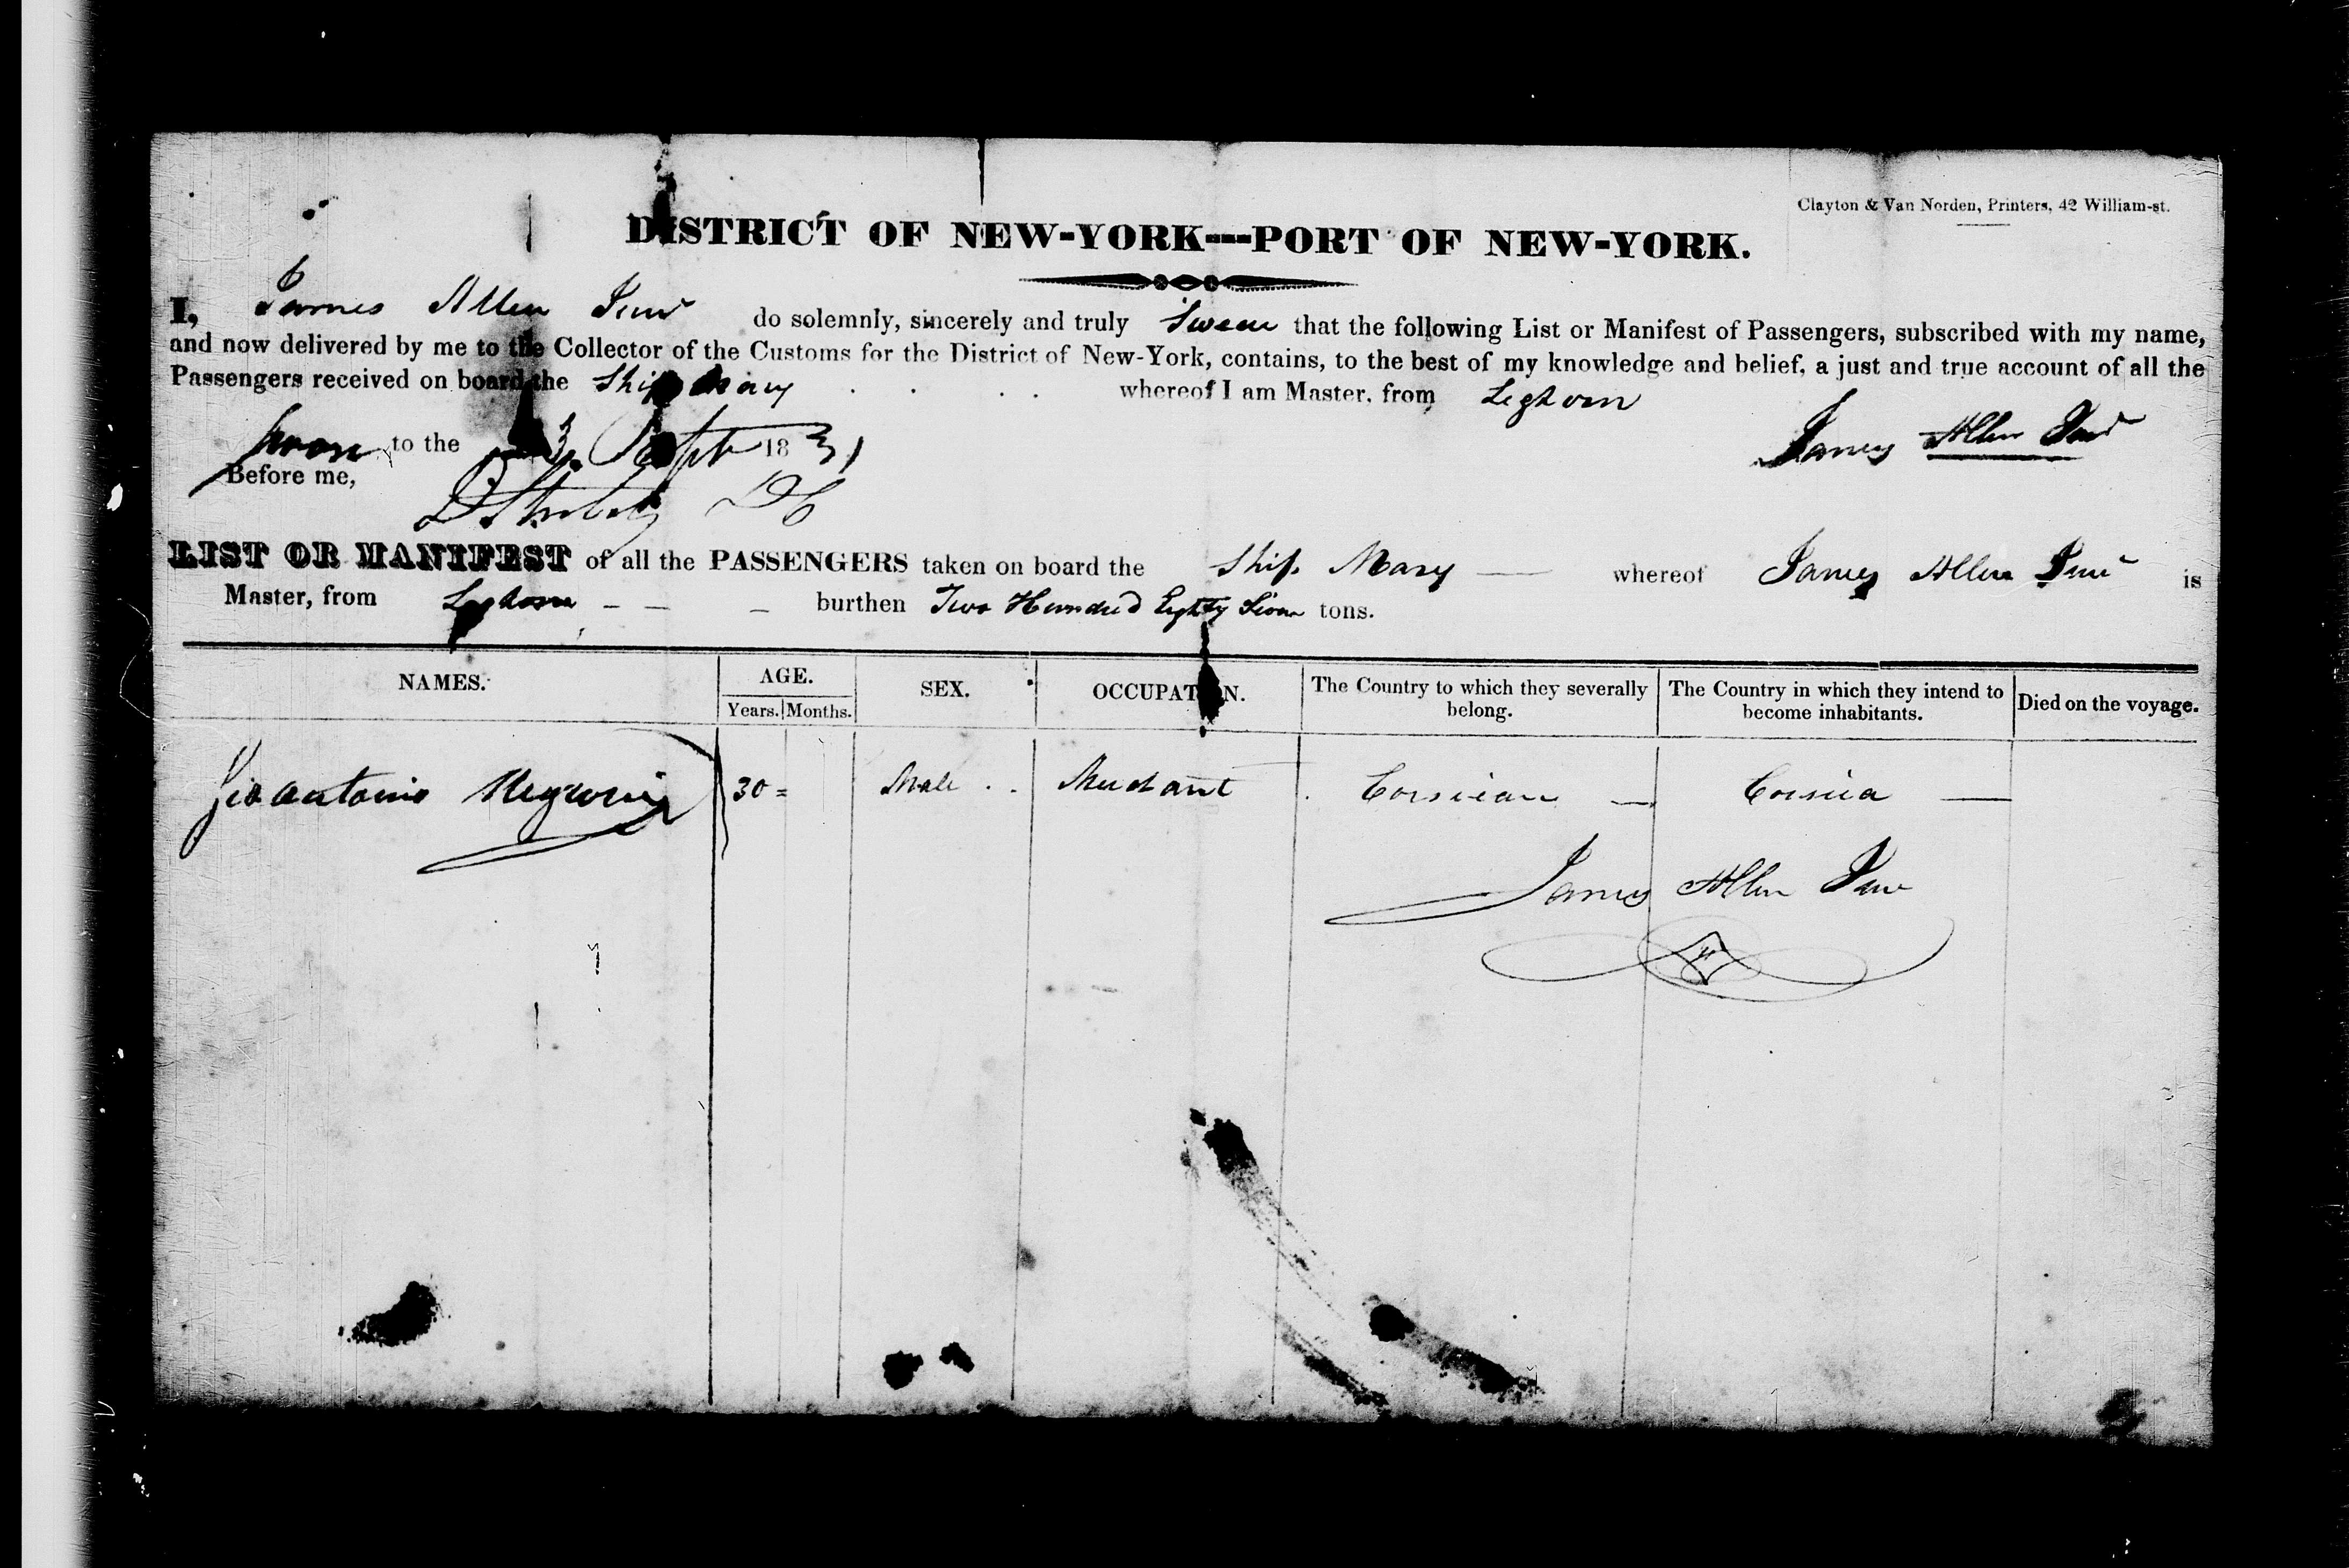 Clayton & Van Norden, Printers, 42 William-st.
DISTRICT OF NEW-YORK---PORT OF NEW-YORK.
I, James Allen Junr do solemnly, sincerely and truly Swear that the following List or Manifest of Passengers, subscribed with my name,
and now delivered by me to the Collector of the Customs for the District of New-York, contains, to the best of my knowledge and belief, a just and true account of all the
Passengers received on board the Ship Mary whereof I am Master, from Leghorn
Sworn to the Sept 1831 James Allen Junr
Before me,
LIST OR MANIFEST of all the PASSENGERS taken on board the Ship Mary whereof James Allen Junr is
Master, from Leghorn burthen Two Hundred Eighty Seven tons.
NAMES. AGE. Years. Months. SEX. OCCUPATION. The Country to which they severally belong. The Country in which they intend to become inhabitants. Died on the voyage.
Gioantonio 30 Male Merchant Corsican Corsica
James Allen Junr